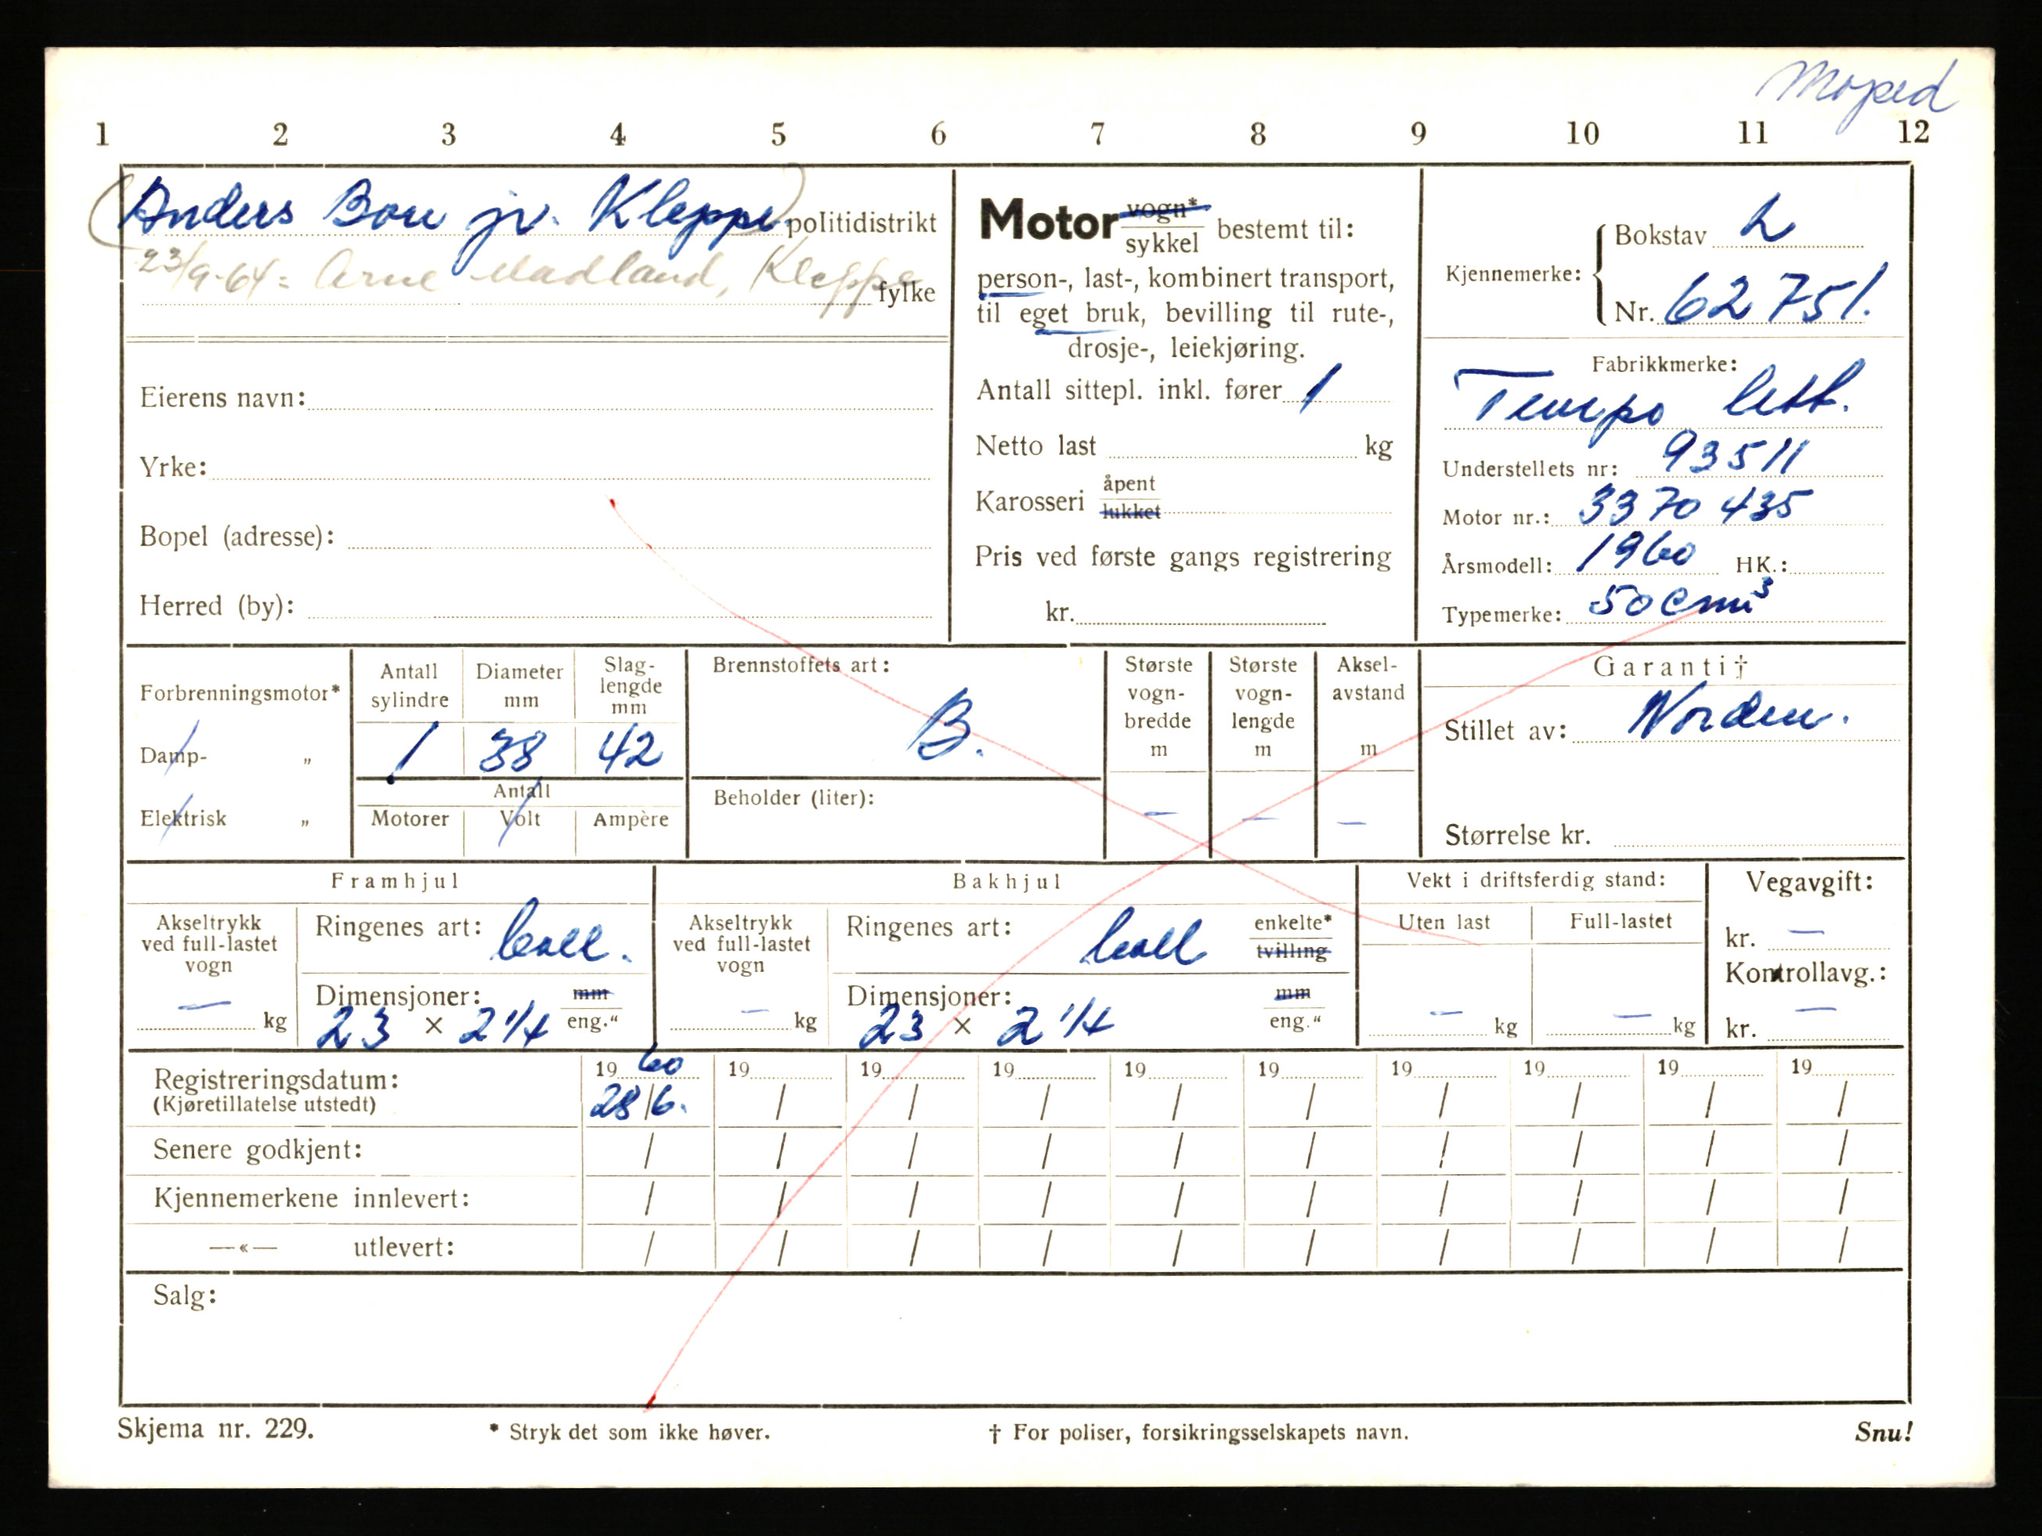 Moped
1 2 3 4 5 6 7 8 9 10 11 12
(Anders Bore jr. Kleppe) politidistrikt
23/9-64: Arne Madland, Kleppe fylke
Eierens navn:
Yrke:
Bopel (adresse):
Herred (by):
Motor vogn* / sykkel bestemt til:
person-, last-, kombinert transport,
til eget bruk, bevilling til rute-,
drosje-, leiekjøring.
Antall sittepl. inkl. fører 1
Netto last kg
Karosseri åpent / lukket
Pris ved første gangs registrering
kr.
Kjennemerke: Bokstav L
Nr. 62751.
Fabrikkmerke:
Tempo lett.
Understellets nr: 93511
Motor nr.: 3370435
Årsmodell: 1960 HK.:
Typemerke: 50 cm³
Forbrenningsmotor*
Damp- „
Elektrisk „
Antall sylindre Diameter mm Slag-lengde mm
1 38 42
Antall
Motorer Volt Ampère
Brennstoffets art:
B.
Beholder (liter):
Største vogn-bredde m Største vogn-lengde m Aksel-avstand m
— — —
Garanti†
Stillet av: Norden.
Størrelse kr.
Framhjul
Akseltrykk ved full-lastet vogn
— kg
Ringenes art: ball.
Dimensjoner: mm / eng."
23 × 2 1/4
Bakhjul
Akseltrykk ved full-lastet vogn
— kg
Ringenes art: ball enkelte* / tvilling
Dimensjoner: mm / eng."
23 × 2 1/4
Vekt i driftsferdig stand:
Uten last Full-lastet
— kg — kg
Vegavgift:
kr. —
Kontrollavg.:
kr. —
Registreringsdatum: 19 60 19 19 19 19 19 19 19 19 19
(Kjøretillatelse utstedt) 28/6. / / / / / / / / /
Senere godkjent: / / / / / / / / / /
Kjennemerkene innlevert: / / / / / / / / / /
—«— utlevert: / / / / / / / / / /
Salg:
Skjema nr. 229. * Stryk det som ikke høver. † For poliser, forsikringsselskapets navn. Snu!